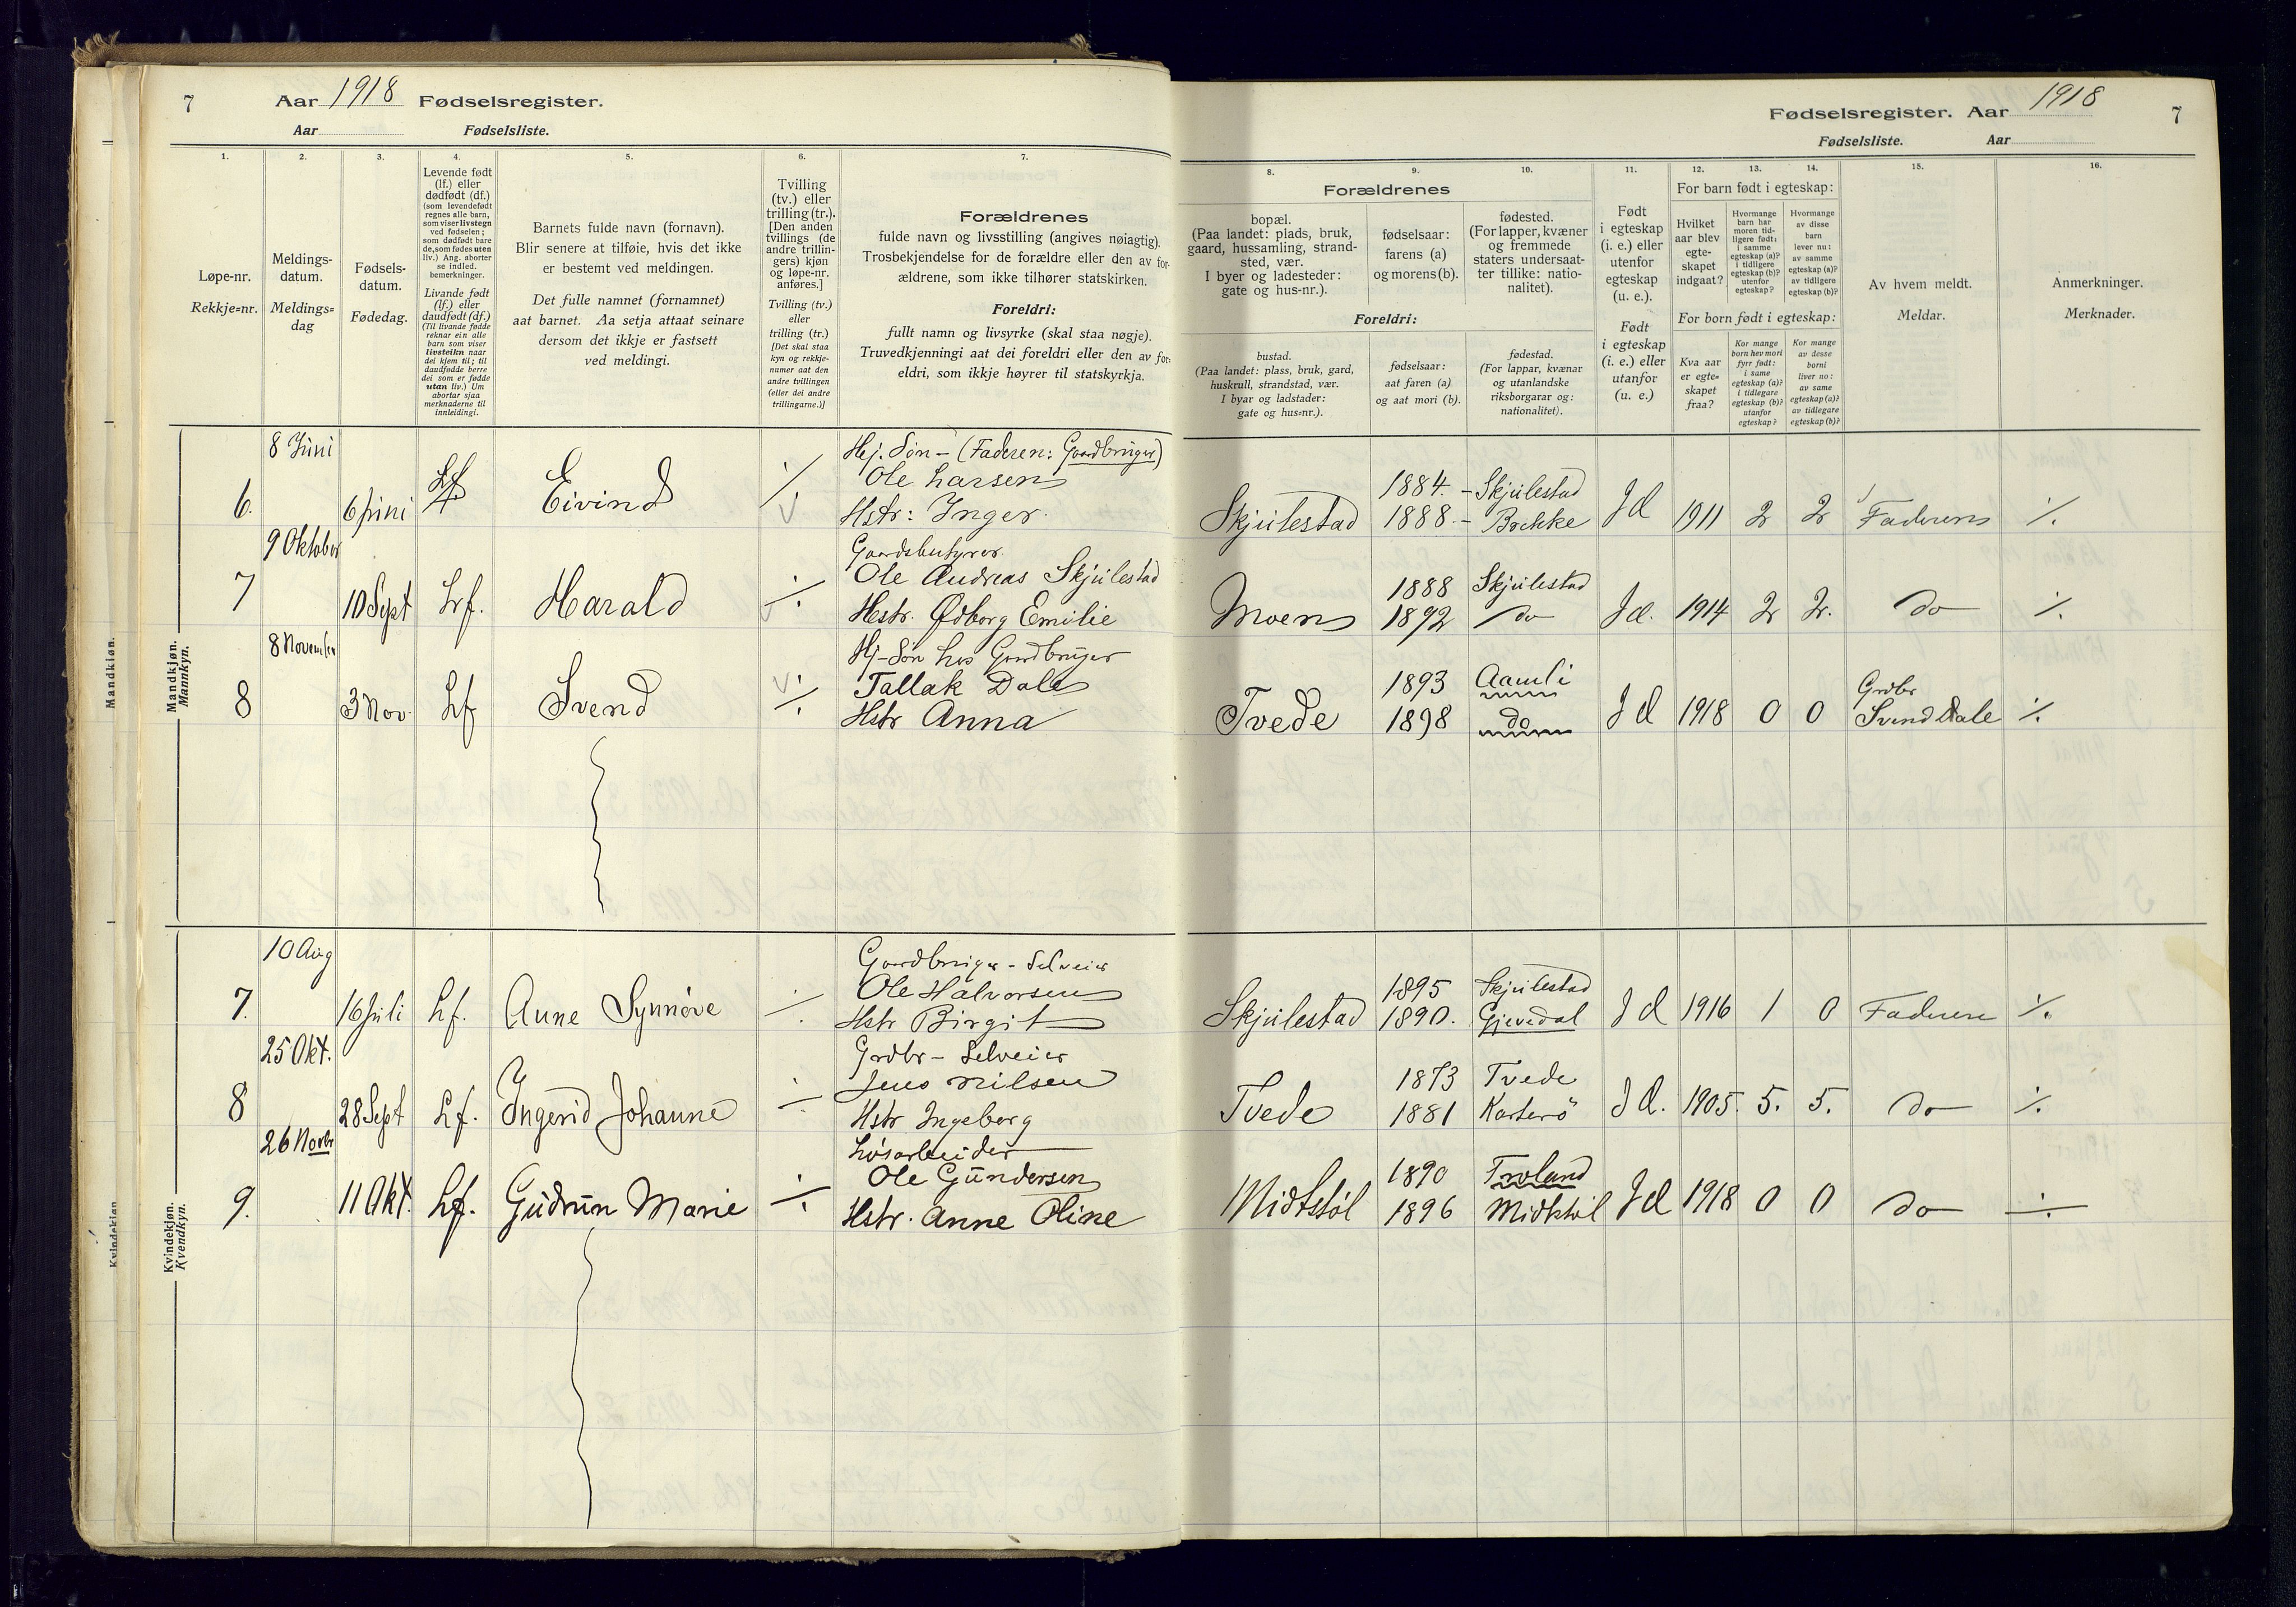 7 Aar 1918 Fødselsregister.
Aar Fødselsliste.
1.
2.
3.
4.
5.
6.
7.
Løpe-nr.
Rekkje=nr.
Meldings-
datum.
Meldings=
dag
Fødsels-
datum.
Fødedag.
Levende født
(lf.) eller
dødfødt (df.)
(som levendefødt
regnes alle barn,
som viser livstegn
ved fødselen;
som dødfødt bare
de, som fødes uten
liv.) Ang. aborter
se indled.
bemerkninger.
Livande født
(lf.) eller
daudfødt (df.)
(Til livande fødde
reknar ein alle
barn som viser
livsteikn naar
dei kjem til; til
daudfødde berre
dei som er fødde
utan liv.) Um
abortar sjaa
merknaderne til
innleidingi.
Barnets fulde navn (fornavn).
Blir senere at tilføie, hvis det ikke
er bestemt ved meldingen.
Det fulle namnet (fornamnet)
aat barnet. Aa setja attaat seinare
dersom det ikkje er fastsett
ved meldingi.
Tvilling
(tv.) eller
trilling (tr.).
[Den anden
tvillings (de
andre trillin-
gers) kjøn
og løpe-nr.
anføres.]
Tvilling (tv.)
eller
trilling (tr.)
[Det skal staa
kyn og rekkje-
numer aat den
andre tvillingen
(eller dei andre
trillingarne.)]
Forældrenes
fulde navn og livsstilling (angives nøiagtig).
Trosbekjendelse for de forældre eller den av for-
ældrene, som ikke tilhører statskirken.
Foreldri:
fullt namn og livsyrke (skal staa nøgje).
Truvedkjenningi aat dei foreldri eller den av for-
eldri, som ikkje høyrer til statskyrkja.
Mandkjøn.
Mandkjøn.
Mannkyn.
8 Juni
6. 6 juni Lf. Eivind ÷
Hej. Søn - (Faderen: Gaardbruger)
Ole Larsen
Hstr: Inger.
9 Oktober
7 10 Sept Lf. Harald ÷
Gaardsbestyrer
Ole Andreas Skjulestad
Hstr. Ødborg Emilie
8 November
8 3 Nov. Lf Svend ÷
Hj-Søn hos Gaardbruger
Tallak Dale
Hstr Anna
Kvindekjøn
Kvindekjøn.
Kvendkyn.
10 Aug
7. 16 juli Lf. Anne Synnøve ÷
Gaardbruger - Selveier
Ole Halvorsen
Hstr Birgit
25 Okt.
8 28 Sept Lf. Ingerid Johanne ÷
Grdbr - Selveier
Jens Nilsen
Hstr Ingeborg
26 Novbr
9. 11 Okt. Lf. Gudrun Marie ÷
Løsarbeider
Ole Gundersen
Hstr. Anne Oline
Fødselsregister. Aar 1918 7
Fødselsliste. Aar
8.
9.
10.
11.
12.
13.
14.
15.
16.
Forældrenes
bopæl.
(Paa landet: plads, bruk,
gaard, hussamling, strand-
sted, vær.
I byer og ladesteder:
gate og hus-nr.).
fødselsaar:
farens (a)
og morens (b).
fødested.
(For lapper, kvæner
og fremmede
staters undersaat-
ter tillike: natio-
nalitet).
Foreldri:
bustad.
(Paa landet: plass, bruk, gard,
huskrull, strandstad, vær.
I byar og ladstader:
gate og hus=nr.).
fødselsaar:
aat faren (a)
og aat mori (b).
fødestad.
(For lappar, kvænar
og utanlandske
riksborgarar og:
nationalitet).
Født
i egteskap
(i. e.) eller
utenfor
egteskap
(u. e.).
Født
i egteskap
(i. e.) eller
utanfor
(u. e.)
For barn født i egteskap:
Hvilket
aar blev
egte-
skapet
indgaat?
Hvormange
barn har
moren tid-
ligere født:
i samme
egteskap (a)?
i tidligere
egteskap (b)?
utenfor
egteskap?
Hvormange
av disse
barn
lever nu:
av samme
egteskap (a)?
av tidligere
egteskap (b)?
For born født i egteskap:
Kva aar
er egte=
skapet
fraa?
Kor mange
born hev mori
fyrr født:
i same
egteskap (a)?
i tidlegare
egteskap (b)?
utanfor
egteskap?
Kor mange
av desse
borni
liver no:
av same
egteskap (a)?
av tidlegare
egteskap (b)?
Av hvem meldt.
Meldar.
Anmerkninger.
Merknader.
1884. - Skjulestad
Skjulestad 1888. - Brekke 1911 2 2 Faderen ÷
1888 Skjulestad
Moen 1892 do 1914 2 2. do ÷
1893 Aamli Grdbr
Tvede 1898 do 1918 0 0 Svend Dale ÷
1895 Skjulestad
Skjulestad 1890. Gjevedal 1916 1 0 Faderen ÷
1873 Tvede
Tvede 1881 1905. 5. 5. do ÷
1890 Froland
Midtstøl 1896 Midtstøl 1918 0 0 do ÷